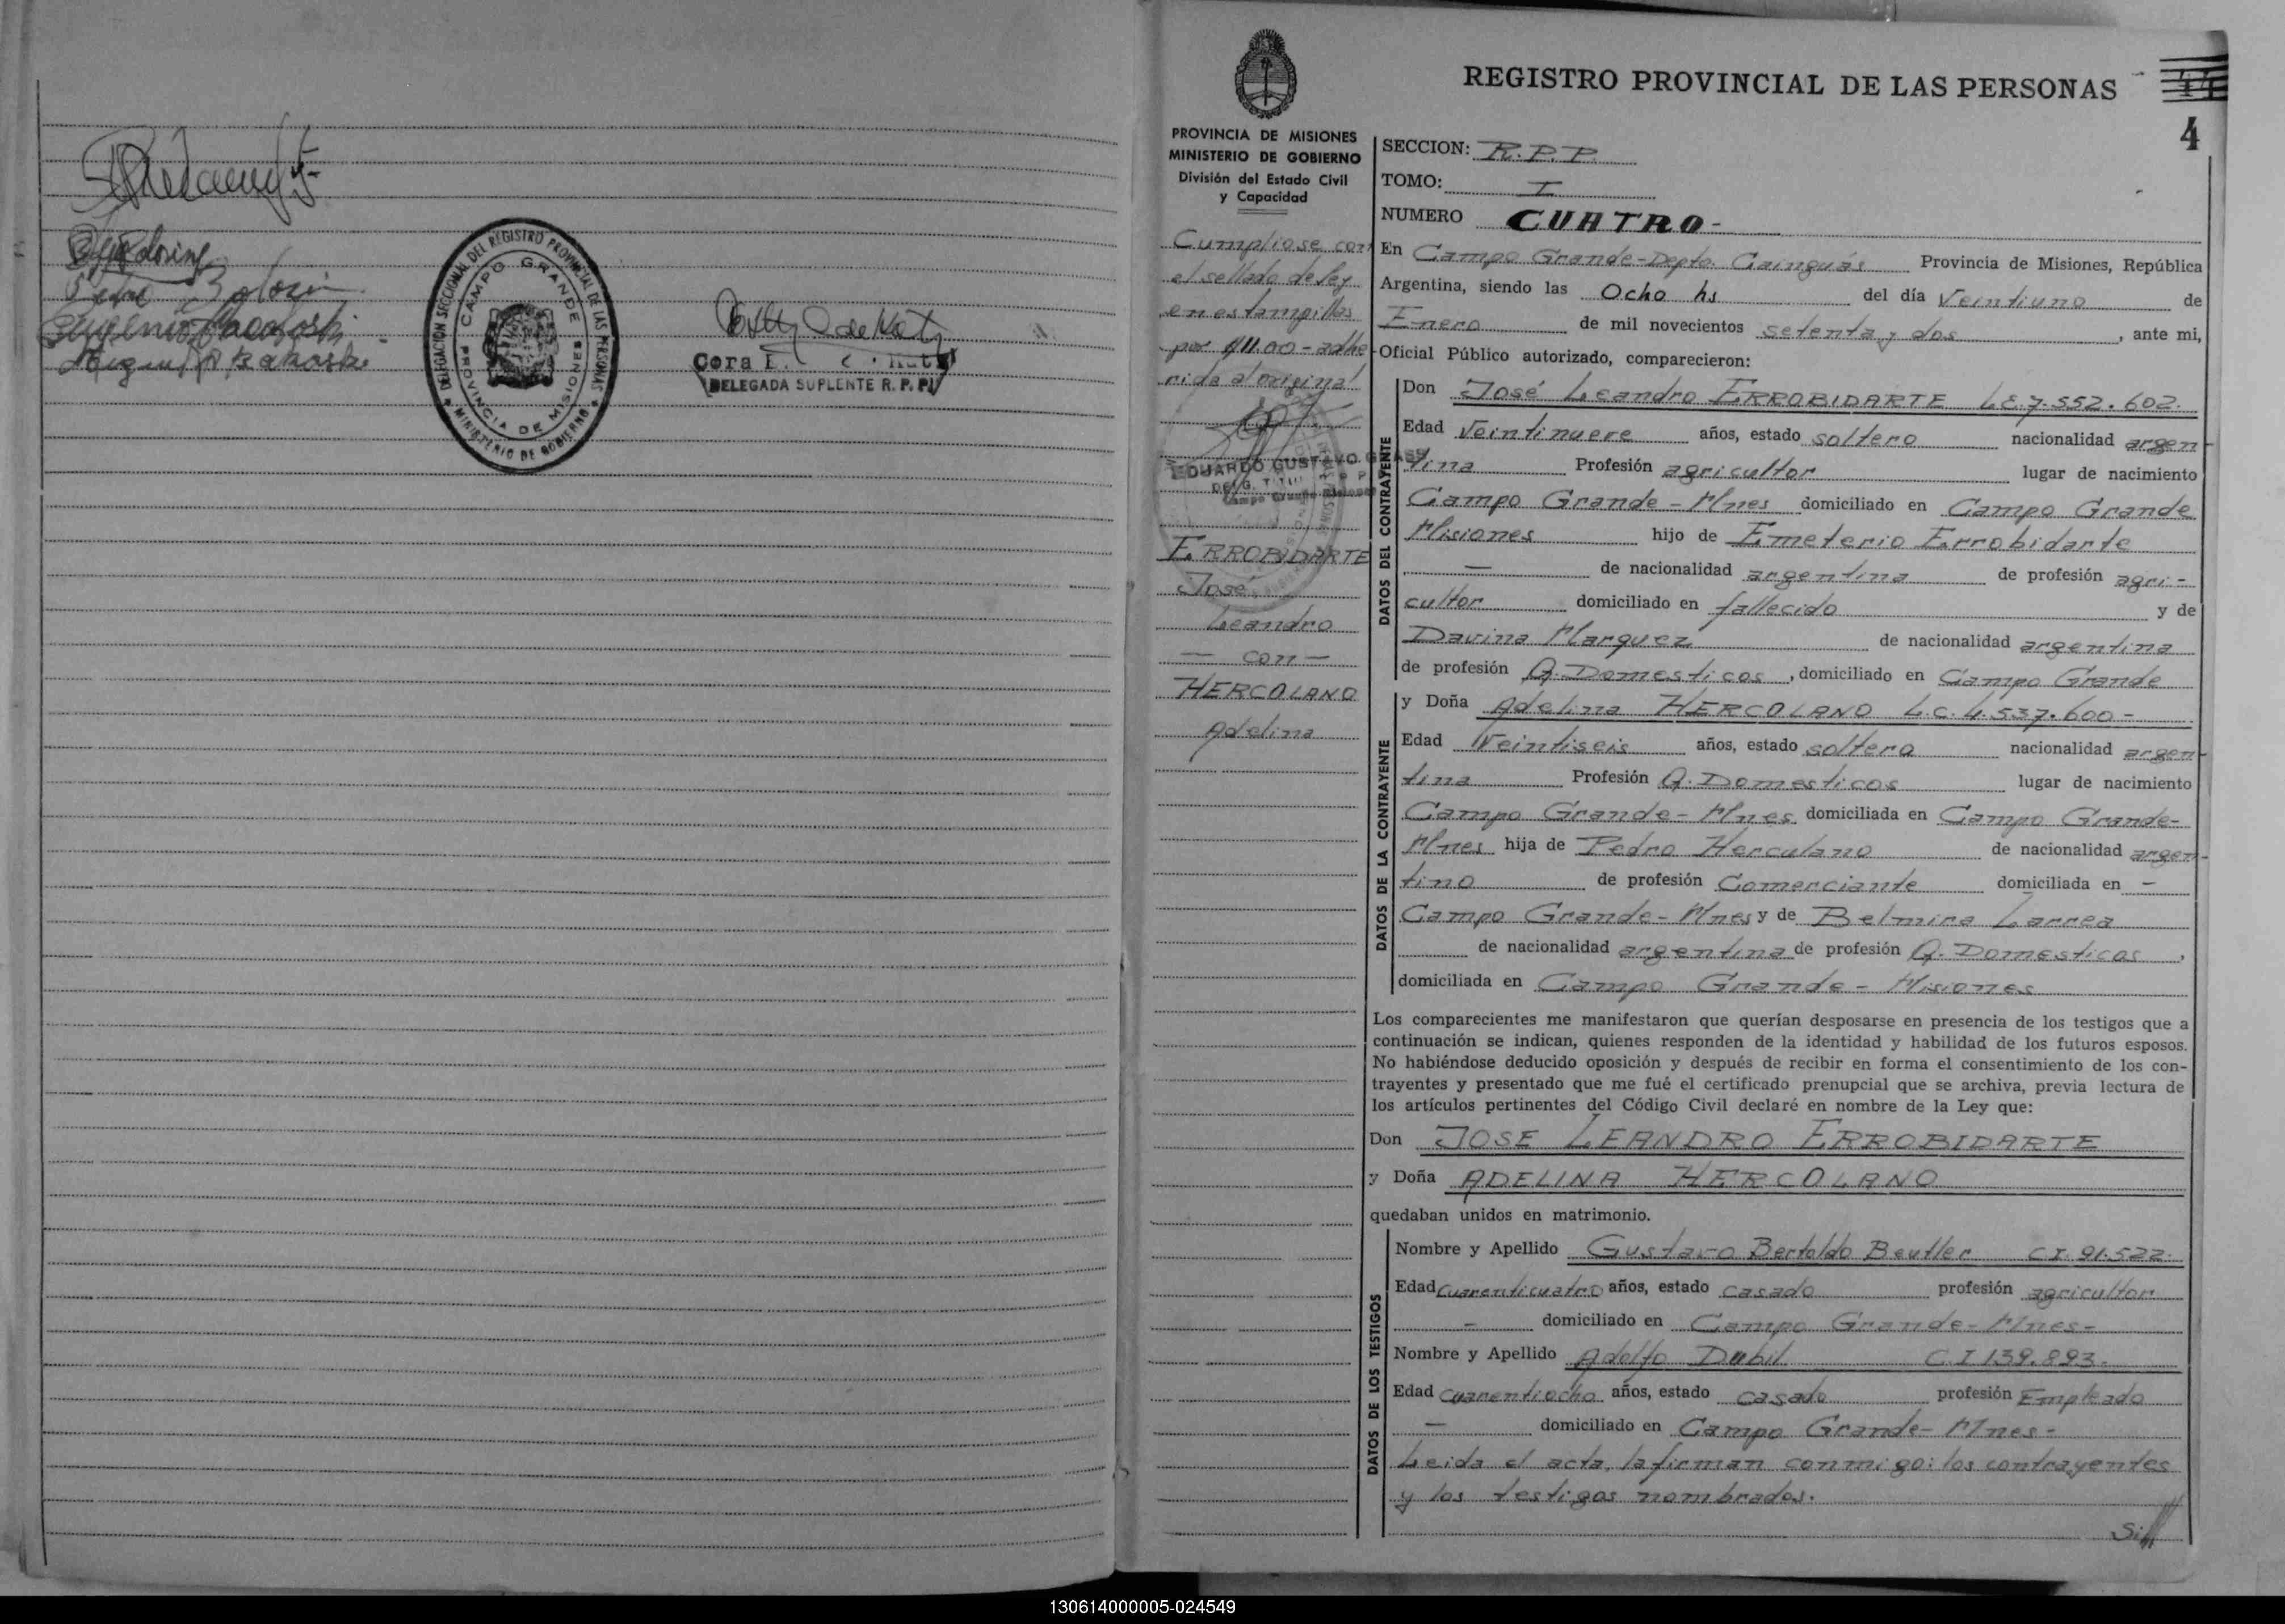 DELEGACION SECCIONAL DEL REGISTRO PROVINCIAL DE LAS PERSONAS
CAMPO GRANDE
PROVINCIA DE MISIONES
* MINISTERIO DE GOBIERNO *
Cora
DELEGADA SUPLENTE R. P. P.
REGISTRO PROVINCIAL DE LAS PERSONAS
4
PROVINCIA DE MISIONES
MINISTERIO DE GOBIERNO
División del Estado Civil
y Capacidad
Cumpliose con
el sellado de ley
en estampillas
por $11.00 - adhe
rida al original
EDUARDO GUSTAVO
ERROBIDARTE
José
Leandro
— con —
HERCOLANO
Adelina
SECCION: R.P.P.
TOMO: I
NUMERO CUATRO -
En Campo Grande - Depto. Cainguás Provincia de Misiones, República
Argentina, siendo las Ocho hs del día Veintiuno de
Enero de mil novecientos setenta y dos, ante mi,
Oficial Público autorizado, comparecieron:
DATOS DEL CONTRAYENTE
Don José Leandro ERROBIDARTE L.E.7.552.602.
Edad Veintinueve años, estado soltero nacionalidad argen
tina Profesión agricultor lugar de nacimiento
Campo Grande - Mnes domiciliado en Campo Grande
Misiones hijo de Emeterio Errobidarte
— de nacionalidad argentina de profesión agri-
cultor domiciliado en fallecido y de
Davina Marquez de nacionalidad argentina
de profesión Q. Domesticos, domiciliado en Campo Grande
DATOS DE LA CONTRAYENTE
y Doña Adelina HERCOLANO L.C. 4.537.600-
Edad Veintiseis años, estado soltera nacionalidad argen-
tina Profesión Q. Domesticos lugar de nacimiento
Campo Grande - Mnes domiciliada en Campo Grande-
Mnes hija de Pedro Herculano de nacionalidad argen-
tino de profesión Comerciante domiciliada en -
Campo Grande - Mnes y de Belmira Larrea
de nacionalidad argentina de profesión Q. Domesticos,
domiciliada en Campo Grande - Misiones
Los comparecientes me manifestaron que querían desposarse en presencia de los testigos que a
continuación se indican, quienes responden de la identidad y habilidad de los futuros esposos.
No habiéndose deducido oposición y después de recibir en forma el consentimiento de los con-
trayentes y presentado que me fué el certificado prenupcial que se archiva, previa lectura de
los artículos pertinentes del Código Civil declaré en nombre de la Ley que:
Don JOSE LEANDRO ERROBIDARTE
y Doña ADELINA HERCOLANO
quedaban unidos en matrimonio.
DATOS DE LOS TESTIGOS
Nombre y Apellido Gustavo Bertoldo Beutler C.I. 91.522.
Edad cuarenticuatro años, estado casado profesión agricultor
- domiciliado en Campo Grande - Mnes-
Nombre y Apellido Adolfo Dubil C.I 139.893.
Edad cuarentiocho años, estado casado profesión Empleado
— domiciliado en Campo Grande - Mnes-
Leida el acta, la firman conmigo: los contrayentes
y los testigos nombrados.
130614000005-024549